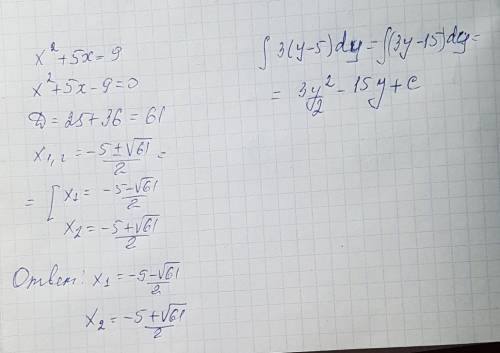 x² + 5x = 9
x² + 5x - 9 = 0
D = 25 + 36 = 61
x₁,₂ = (-5 ± √61)/2 =
= [ x₁ = (-5 - √61)/2
x₂ = (-5 + √61)/2
Ответ: x₁ = (-5 - √61)/2
x₂ = (-5 + √61)/2
∫ 3(y - 5) dy = ∫ (3y - 15) dy =
= 3y²/2 - 15y + c